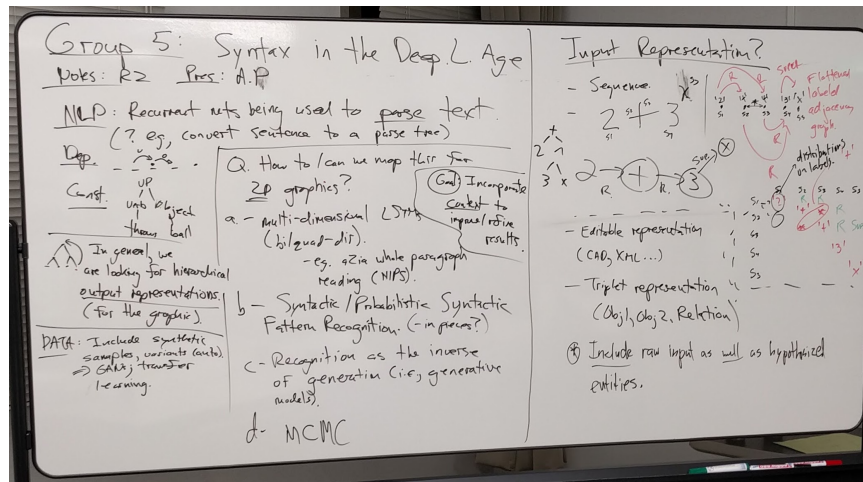 Group 5: Syntax in the Deep. L. Age
Notes: RZ Pres: A.P
NLP: Recurrent nets being used to parse text.
(? eg, convert sentence to a parse tree)
Dep.
Const.
VP
verb Object
throw ball
In general, we
are looking for hierarchical
output representations.
(for the graphic).
DATA: Include synthetic
samples, variants (auto)
=> GANs; transfer
learning.
Q. How to/can we map this for
2D graphics?
Goal: Incorporate
context to
improve/refine
results.
a - multi-dimensional LSTMs
(bi/quad-dir).
- eg. a2ia whole paragraph
reading (NIPS).
b - Syntactic/Probabilistic Syntactic
Pattern Recognition. (- in pieces?)
c - Recognition as the inverse
of generation (i.e., generative
models).
d - MCMC
Input Representation?
- Sequence.
2 + 3
+
2
3 x
2 R + R 3 x
- Editable representation
(CAD, XML...)
- Triplet representation
(Obj1, Obj2, Relation)
* Include raw input as well as hypothesized
entities.
Flattened
labeled
adjacency
graph
distributions
on labels.